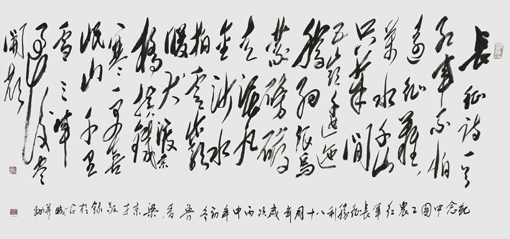 长征诗一首
红军不怕
远征难
万水千山
只等闲
五岭逶迤
腾细浪乌
蒙磅礴
走泥丸
金沙水
拍云崖
暖大渡
桥横铁索
寒更喜
岷山千里
雪三军
过后尽
开颜
纪念中国工农红军长征胜利八十周年岁次丙申年初冬